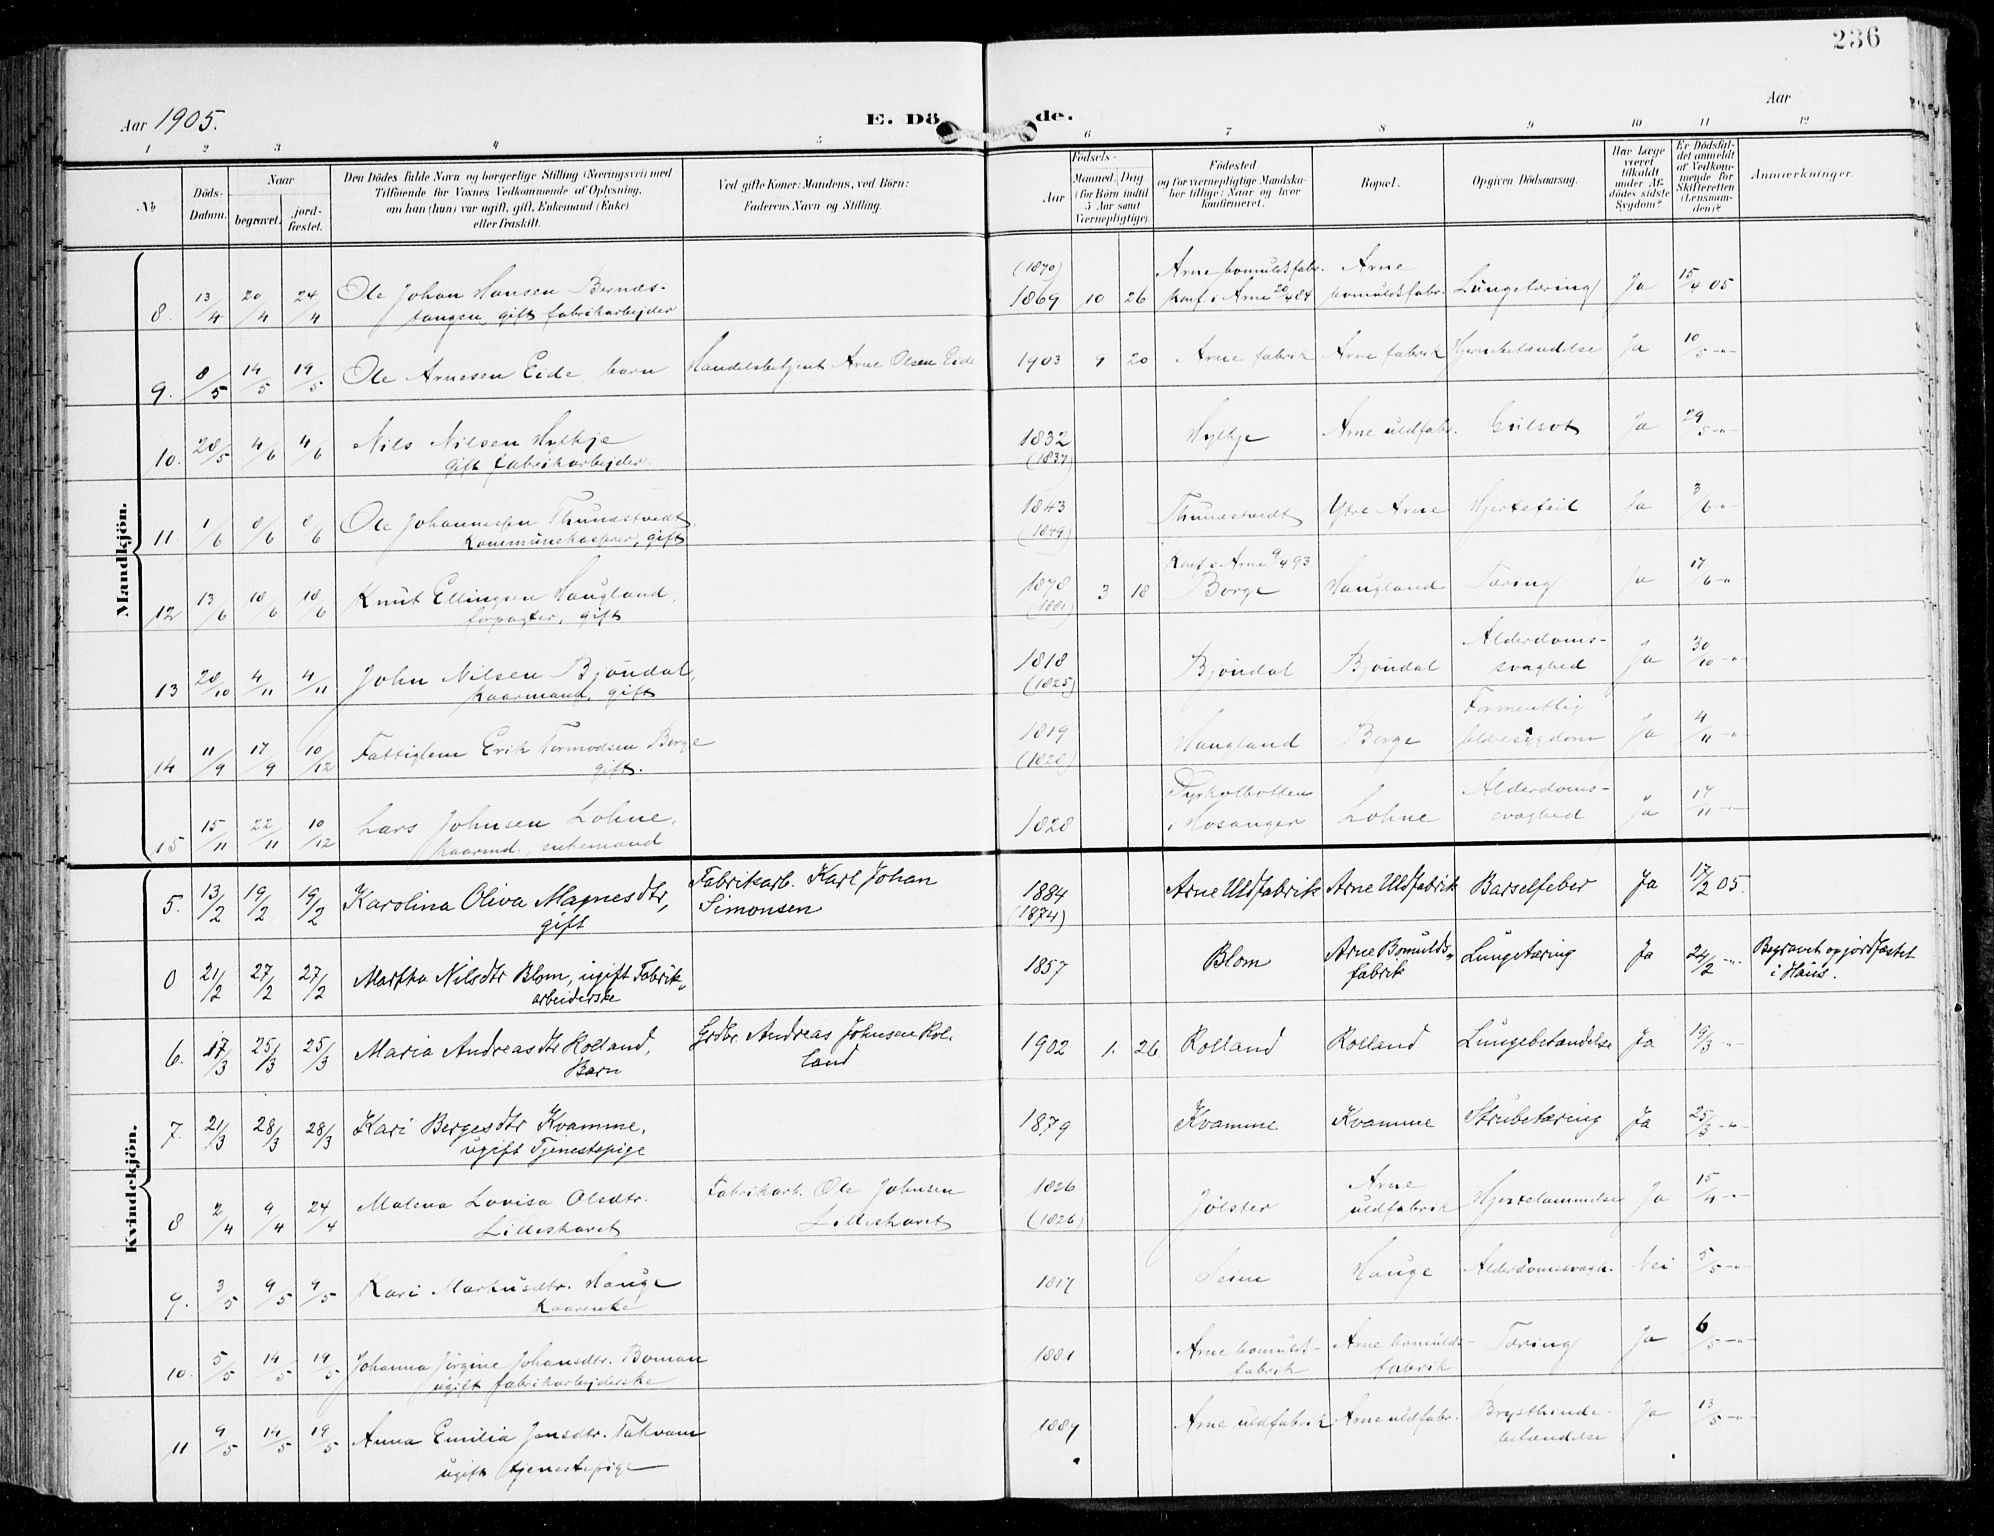 236
Aar 1905.
E. Dö
de.
Aar
1 2 3 4 5 6 7 8 9 10 11 12
No
Döds-Datum.
Naar
begravet.
jord-fæstet.
Den Dödes fulde Navn og borgerlige Stilling (Næringsvei) med
Tilföiende for Voxnes Vedkommende af Oplysning,
om han (hun) var ugift, gift, Enkemand (Enke)
eller fraskilt.
Ved gifte Koner: Mandens, ved Börn:
Faderens Navn og Stilling.
Födsels-
Aar
Maaned. Dag
(for Börn indtil
5 Aar samt
Værnepligtige).
Födested
og for værnepligtige Mandska-
ber tillige: Naar og hvor
konfirmeret.
Bopæl.
Opgiven Dödsaarsag.
Har Læge
været
tilkaldt
under Af-
dödes sidste
Sygdom?
Er Dödsfal-
det anmeldt
af Vedkom-
mende for
Skifteretten
(Lensman-
den)?
Anmærkninger.
Mandkjön.
(1870) Arne bomuldsfabr. Arne
8. 13/4 20/4 24/4 Ole Johan Hansen Bernes- 1869 10 26 Konf. i Arne 20/4 84 bomuldsfabr. Lungetæring Ja 15/4 05
tangen, gift fabrikarbejder
9. 8/5 14/5 19/5 Ole Arnesen Eide, barn Handelsbetjent Arne Olsen Eide 1903 9 20 Arne fabrik Arne fabrik Hjernebetændelse Ja 10/5 -"-
10. 28/5 4/6 4/6 Nils Nilsen Hylkje 1832 Hylkje Arne uldfabr. Gulsot Ja 29/5 -"-
gift fabrikarbejder. (1837)
11 1/6 8/6 8/6 Ole Johannessen Thunestvedt, 1843 Thunestvedt Ytre Arne Hjertefeil Ja 3/6 -"-
Kommunekasserer, gift (1849)
Konf. i Arne 9/4 93
12 13/6 18/6 18/6 Knut Ellingsen Haugland, 1878 3 18 Borge Haugland Tæring Ja 17/6 -"-
forpagter, gift (1881)
Alderdoms-
13 28/10 4/11 4/11 John Nilsen Bjöndal, 1818 Bjöndal Bjöndal svaghed Ja 30/10 -"-
kaarmand, gift (1825)
Formentlig
14 11/9 17/9 10/12 Fattiglem Erik Tormodsen Borge 1819 Haugland Borge Ja 4/11 -"-
gift. (1828)
Alderdoms-
15 15/11 22/11 10/12 Lars Johnsen Lohne, 1828 i Hosanger Lohne svaghed Ja 17/11 -"-
kaarmd., enkemand
Kvindekjön.
5. 13/2 19/2 19/2 Karolina Oliva Magnesdtr, Fabrikarb. Karl Johan 1884 Arne Uldfabrik Arne Uldfabrik Barselfeber Ja 17/2 05.
gift Simonsen (1874)
0 21/2 27/2 27/2 Martha Nilsdtr Blom, ugift Fabrik- 1857 Blom Arne Bomulds- Lungetæring Ja 24/2 -"- Begravet og jordfæstet
arbeiderske fabrik i Haus.
6. 17/3 25/3 25/3 Maria Andreasdtr Rolland, Grdbr. Andreas Johnsen Rol- 1902 1. 26 Rolland Rolland Lungebetændelse Ja 19/3 -"-
Barn land
7. 21/3 28/3 28/3 Kari Bergesdtr Kvamme, 1879 Kvamme Kvamme Strubetæring Ja 25/3 -"-
ugift Tjenestepige
Arne
8 2/4 9/4 24/4 Malena Lovisa Olsdtr. Fabrikarb. Ole Johnsen 1826 Jölster uldfabrik Hjertelammelse Ja 15/4 -"-
Lilleskaret Lilleskaret (1826)
9. 3/5 9/5 9/5 Kari Markusdtr. Hauge 1817 Seim Hauge Alderdomssvagh. Nei 5/5 -"-
Kaarenke
10. 5/5 14/5 19/5 Johanna Jörgine Johansdtr. Boman 1881 Arne bomulds- Arne bomulds- Tæring Ja 6/5 -"-
ugift fabrikarbejderske fabrik fabrik
11 9/5 14/5 19/5 Anna Emilia Jensdtr. Takvam 1889 Arne uldfabrik Arne uldfabr. Brysthinde- Ja 13/5 -"-
ugift tjenestepige betændelse